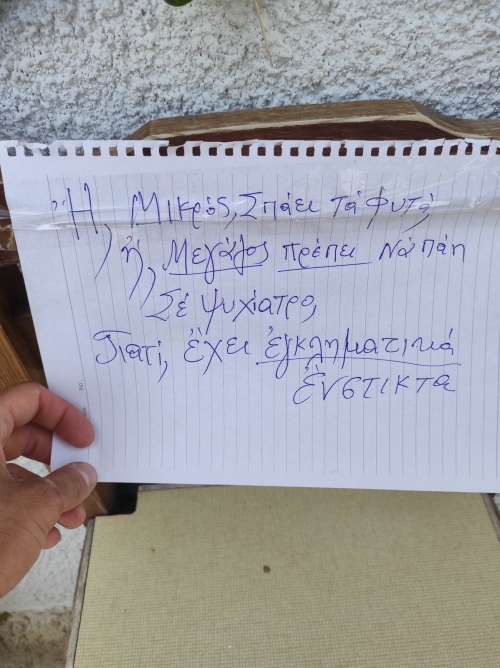 Ἤ, Μικρός, Σπάει τά φυτά,
ἤ, Μεγάλος πρέπει Νά πάη
Σέ ψυχίατρο,
Γιατί, ἔχει ἐγκληματικά
ἔνστικτα